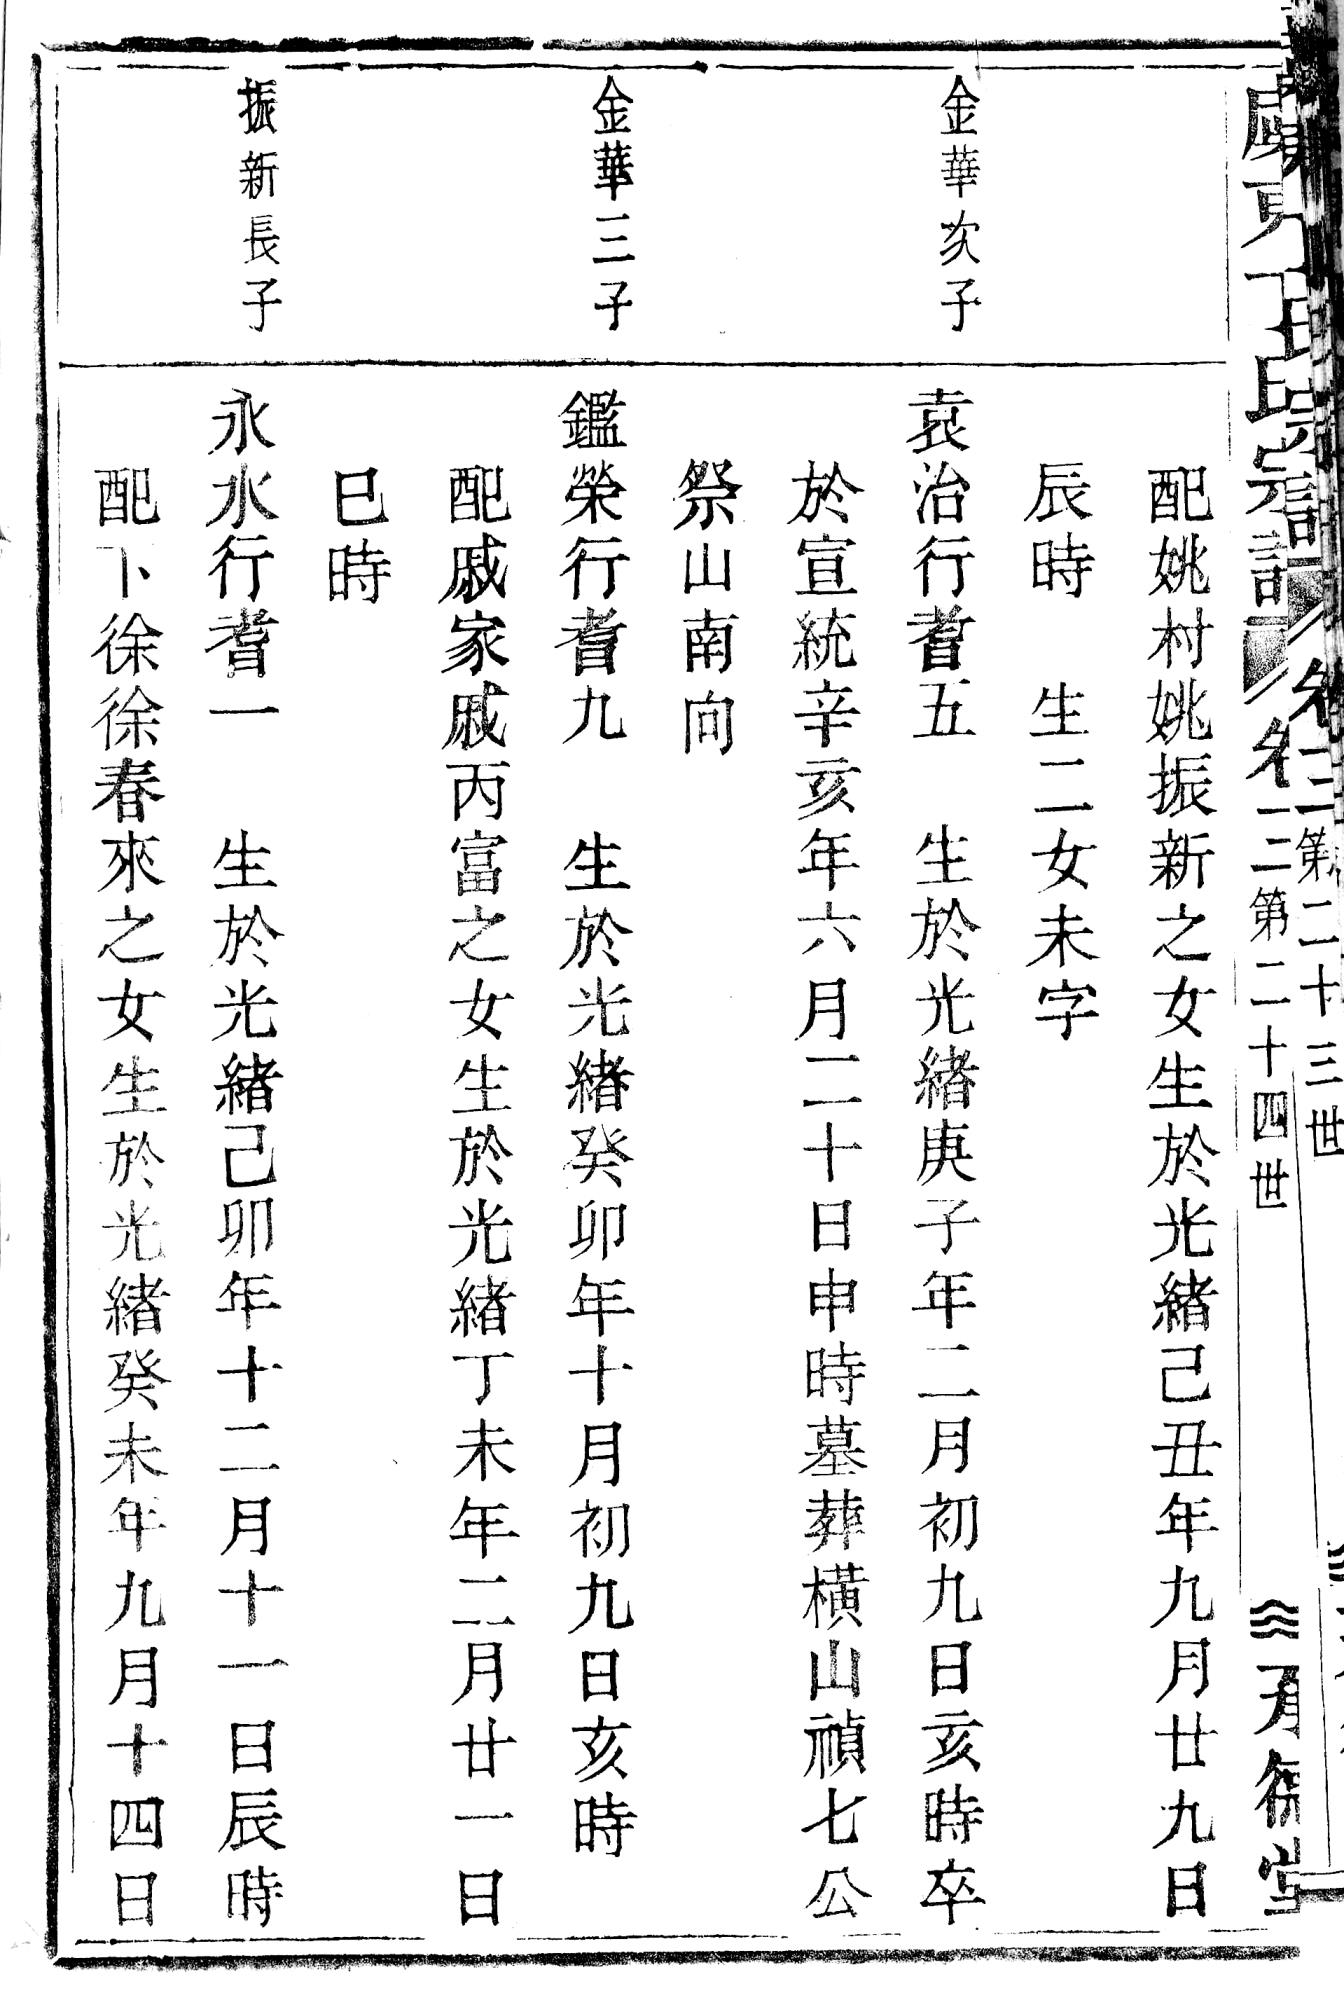 氏宗譜
卷二第二十四世
第二十三世
配姚村姚振新之女生於光緒己丑年九月廿九日
辰時　生二女未字
金華次子
袁治行耆五　生於光緒庚子年二月初九日亥時卒
於宣統辛亥年六月二十日申時墓葬橫山禎七公
祭山南向
金華三子
鑑榮行耆九　生於光緒癸卯年十月初九日亥時
配戚家戚丙富之女生於光緒丁未年二月廿一日
巳時
振新長子
永水行耆一　生於光緒己卯年十二月十一日辰時
配卞徐徐春來之女生於光緒癸未年九月十四日